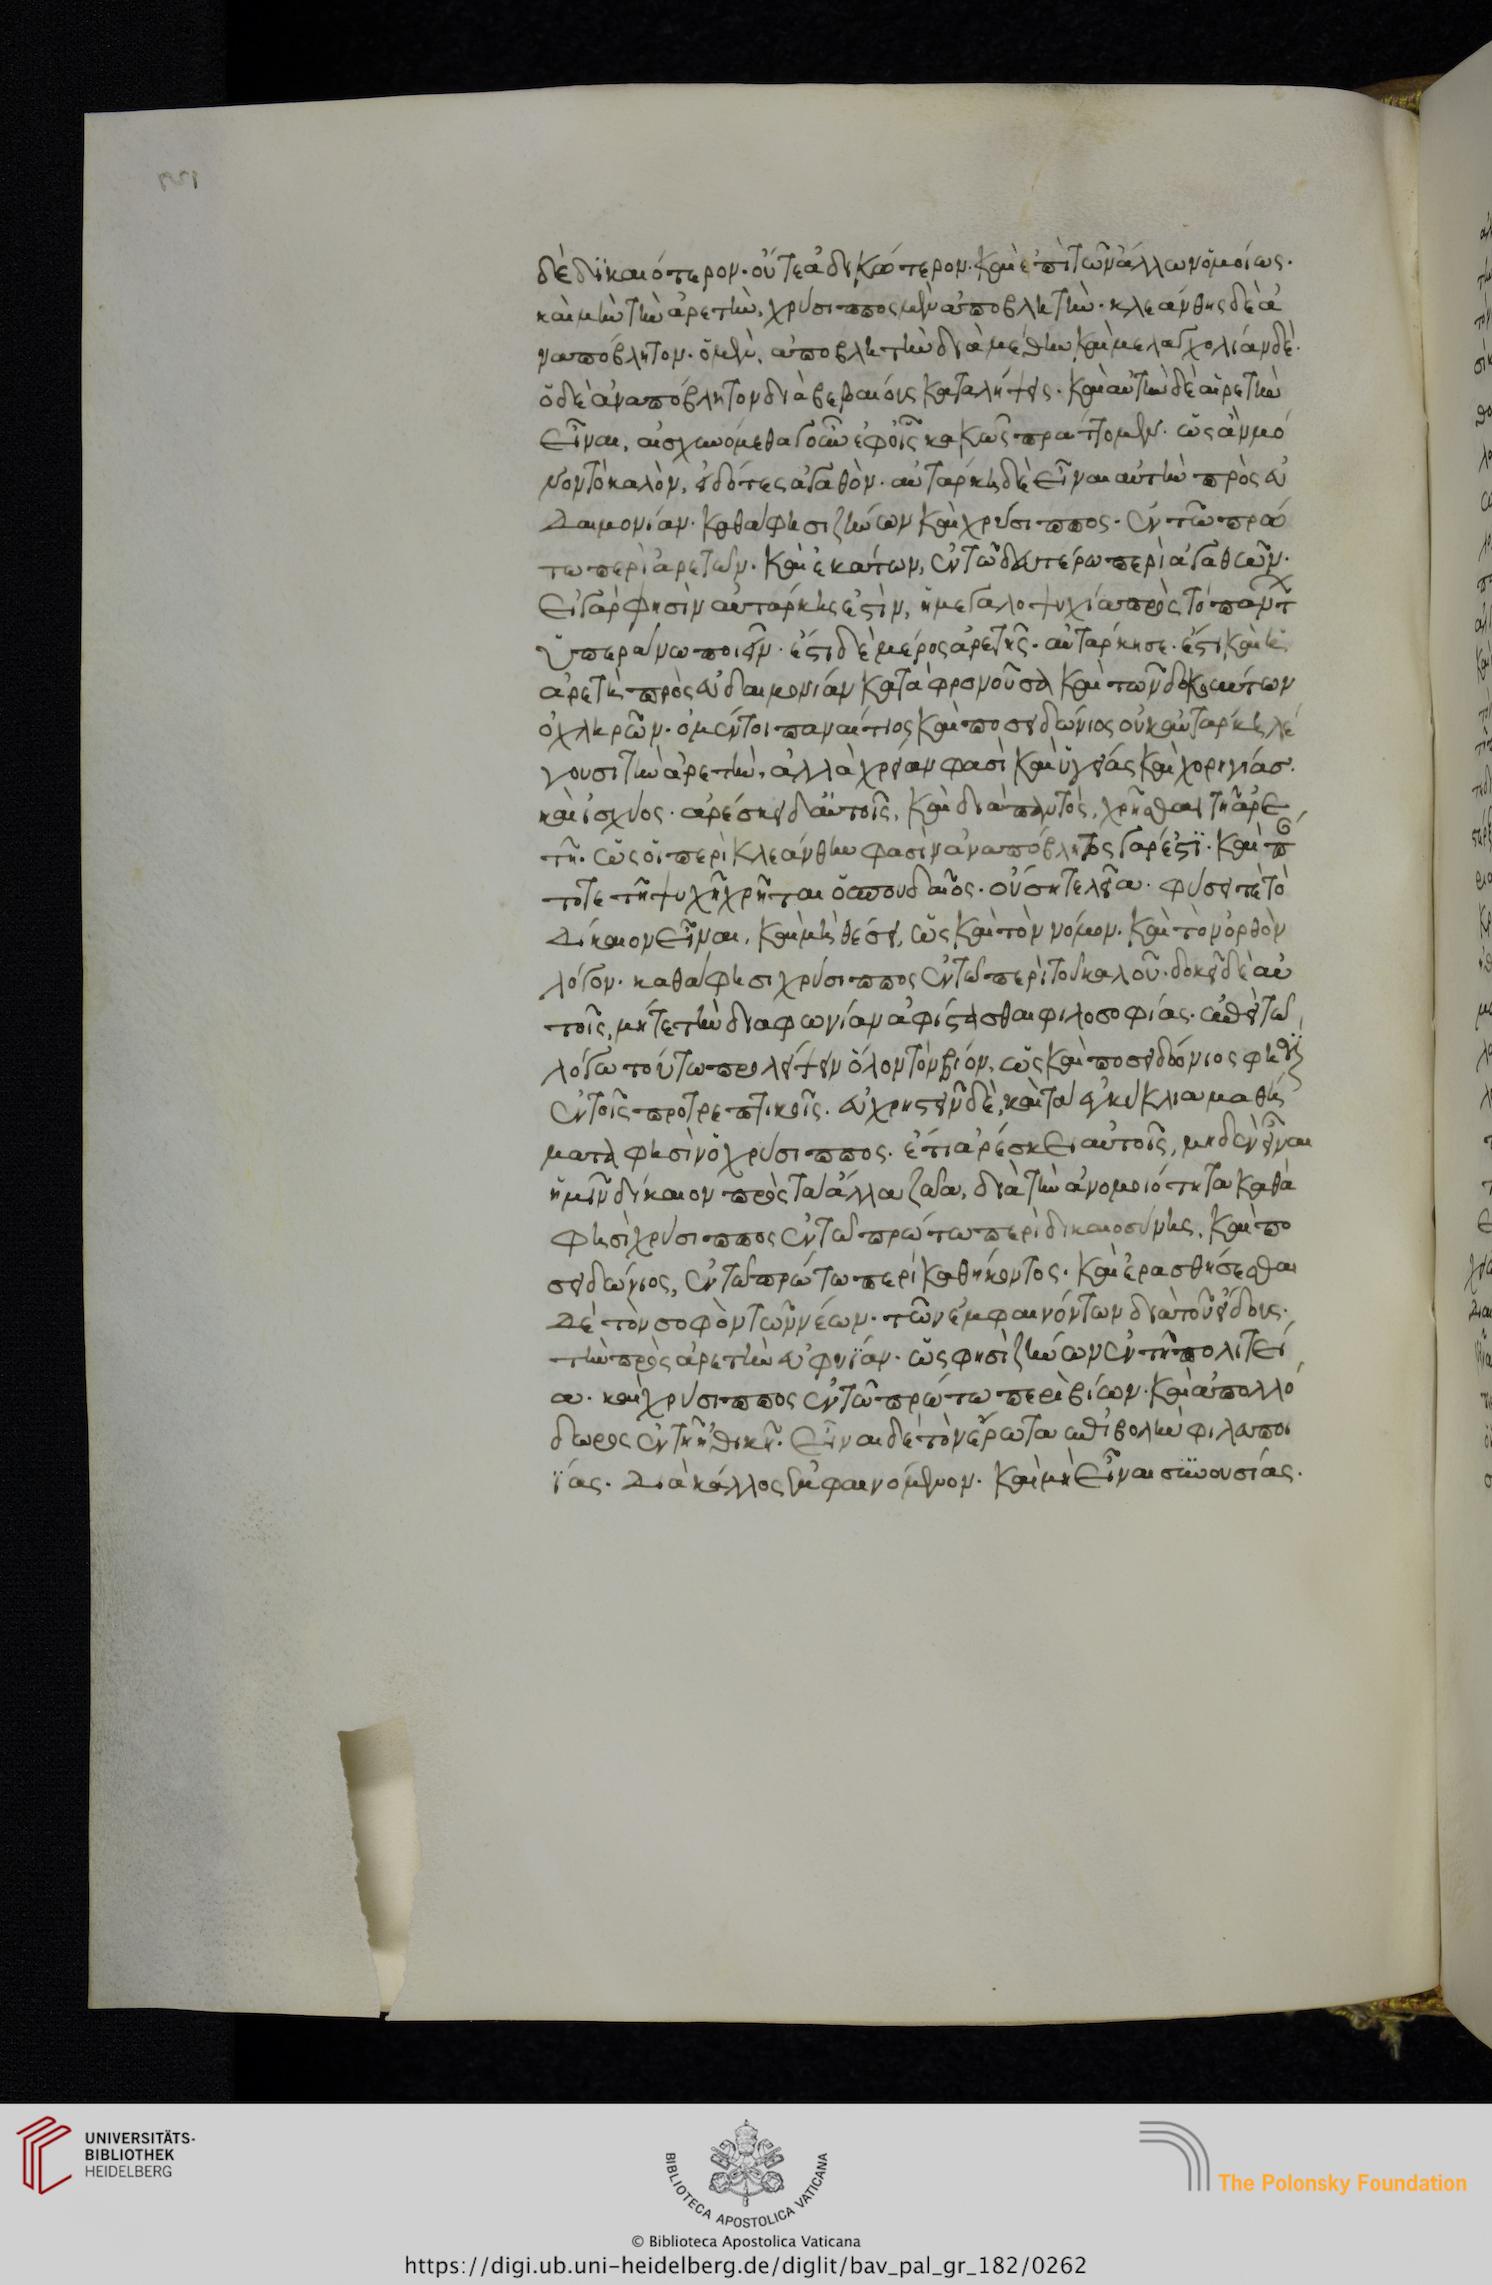 δὲ δϊκαιότερον· οὔτε ἀδικώτερον. καὶ ἐπὶ τῶν ἄλλων ὁμοίως.
καὶ μὴν τὴν ἀρετὴν, χρύσιππος μὲν ἀποβλητὴν· κλεάνθης δὲ ἀ
ναπόβλητον. ὁ μὲν, ἀποβλητὴν διὰ μέθην καὶ μελαγχολίαν δὲ.
ὁ δὲ ἀναπόβλητον διὰ βεβαιόυς καταλήψεις. καὶ αὐτὴν δὲ αἱρετὴν
εἶναι, αἰσχυνόμεθα γοῦν ἐφ' οἷς κακῶς πράττομεν. ὡς ἂν μό
νον τὸ καλὸν, εἰδότες ἀγαθὸν. αὐτάρκη δὲ εἶναι αὐτὴν πρὸς εὐ
δαιμονίαν. καθά φησι ζήνων καὶ χρύσιππος. ἐν τῶ πρώ
τω περὶ ἀρετῶν. καὶ ἑκάτων, ἐν τῶ δευτέρω περὶ ἀγαθῶν.
Εἰ γὰρ φησὶν αὐτάρκης ἐστὶν, ἡ μεγαλοψυχία πρὸς τὸ πάντ
ὑπεράνω ποιεῖν. ἔστι δὲ μέρος ἀρετῆς. αὐτάρκησε. ἔστι καὶ ἡ
ἀρετὴ πρὸς εὐδαιμονίαν καταφρονοῦσα καὶ τῶν δοκούντων
ὀχληρῶν. ὁ μέντοι παναίτιος καὶ ποσειδώνιος οὐκ αὐτάρκη λέ
γουσι τὴν ἀρετὴν, ἀλλὰ χρείαν φασὶ καὶ ὑγείας καὶ χορηγίασ.
καὶ ἰσχύος. ἀρέσκει δ' αὐτοῖς, καὶ διὰ παντὸς, χρῆσθαι τῆ ἀρε
τῆ. ὡς οἱ περὶ κλεάνθην φασὶν ἀναπόβλητος γάρ ἐστϊ. καὶ π
τοτε τῆ ψυχῆ χρῆται ὁ σπουδαῖος. οὔση τελεία. φύσει τε τὸ
δίκαιον εἶναι, καὶ μὴ θέσει, ὡς καὶ τὸν νόμον. καὶ τὸν ὀρθὸν
λόγον. καθά φησι χρύσιππος ἐν τῶ περὶ τοῦ καλοῦ. δοκεῖ δὲ αὐ
τοῖς, μήτε τὴν διαφωνίαν ἀφίστασθαι φιλοσοφίας. ἐπεὶ τῶ
λόγω τούτω προλείψειν ὅλον τὸν βίον, ὡς καὶ ποσειδώνιος φησὶ
ἐν τοῖς προτρεπτικοῖς. εὐχρηστεῖν δὲ, καὶ τὰ ἐγκύκλια μαθή
ματα φησὶν ὁ χρύσιππος. ἔτι ἀρέσκει αὐτοῖς, μηδὲν εἶναι
ἡμῖν δίκαιον πρὸς τὰ ἄλλα ζῶα, διὰ τὴν ἀνομοιότητα καθά
φησὶ χρύσιππος ἐν τῶ πρώτω περὶ δικαιοσύνης, καὶ πο
σειδώνιος, ἐν τῶ πρώτω περὶ καθήκοντος. καὶ ἐρασθήσεσθαι
δὲ τὸν σοφὸν τῶν νέων. τῶν ἐμφαινόντων διὰ τοῦ εἴδους.
τὴν πρὸς ἀρετὴν εὐφυϊάν. ὡς φησὶ ζήνων ἐν τῆ πολιτεί
α. καὶ χρύσιππος ἐν τῶ πρώτω περὶ βίων. καὶ ἀπολλό
δωρος ἐν τῆ ἠθικῆ. εἶναι δὲ τὸν ἔρωτα ἐπιβολὴν φιλοποι
ΐας. διὰ κάλλος ἐμφαινόμενον. καὶ μὴ εἶναι συνουσίας.
UNIVERSITÄTS-
BIBLIOTHEK
HEIDELBERG
BIBLIOTECA APOSTOLICA VATICANA
The Polonsky Foundation
© Biblioteca Apostolica Vaticana
https://digi.ub.uni-heidelberg.de/diglit/bav_pal_gr_182/0262